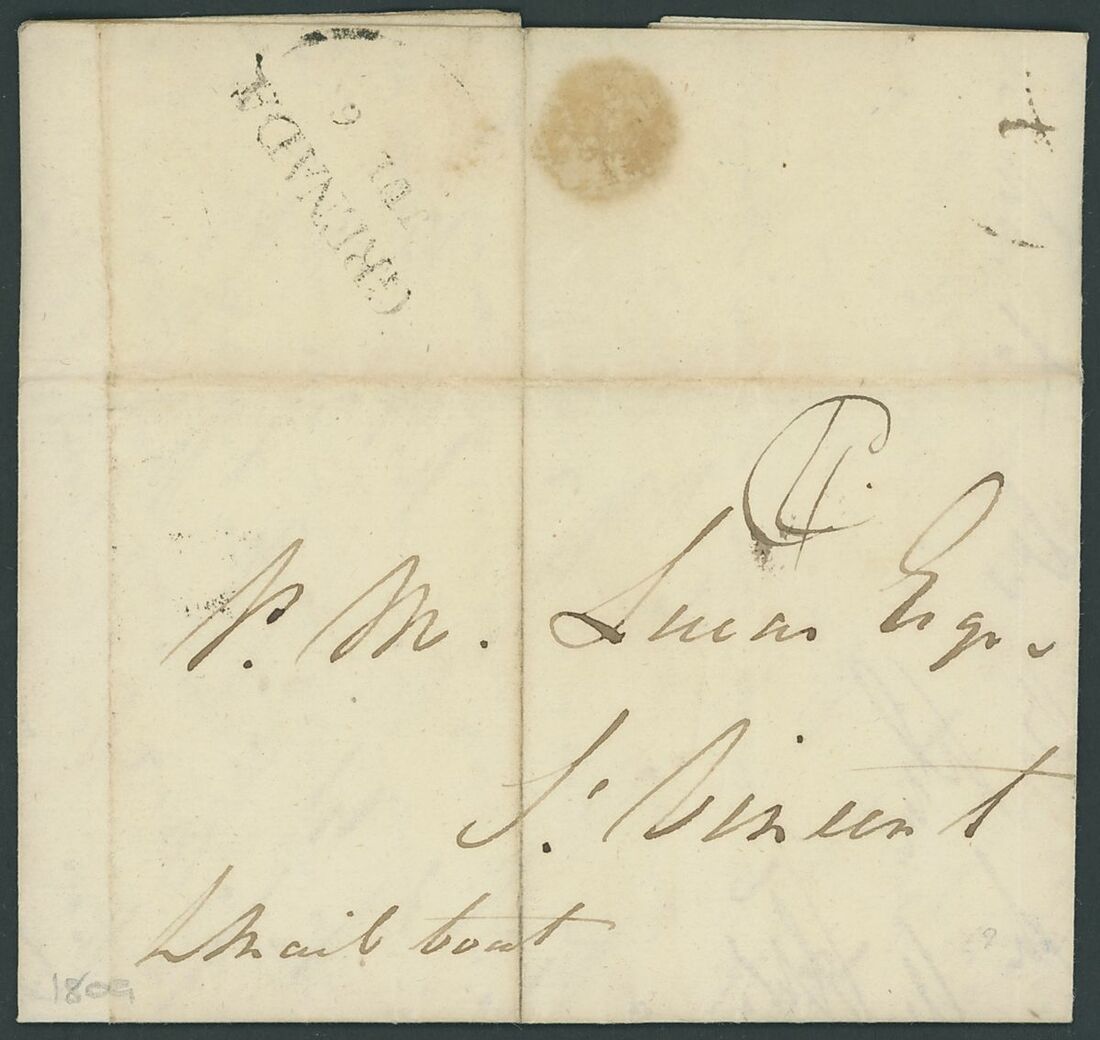 GRENADA
P. M. Lucas Esqr.
St. Vincent
Mail boat
1809